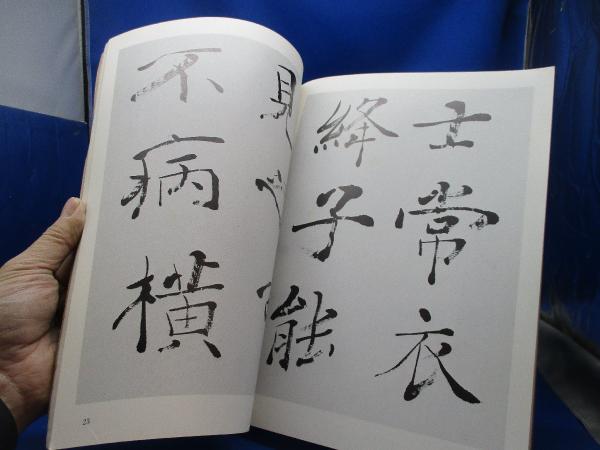 士常衣
絳子能
見
不病橫
23